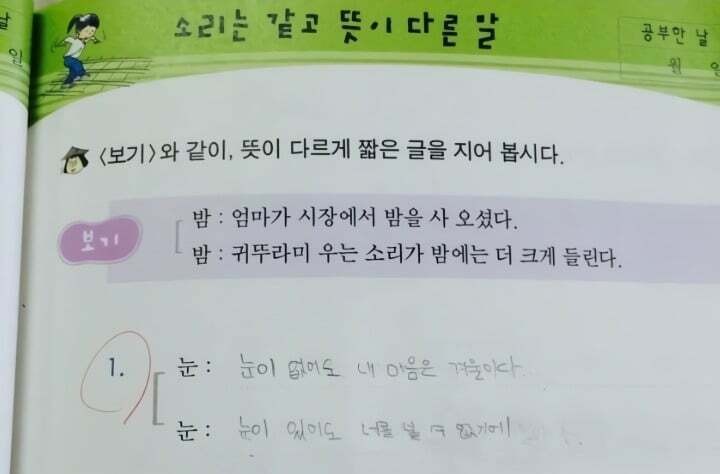 날
일
소리는 같고 뜻이 다른 말
공부한 날
월 일
<보기>와 같이, 뜻이 다르게 짧은 글을 지어 봅시다.
보기
밤 : 엄마가 시장에서 밤을 사 오셨다.
밤 : 귀뚜라미 우는 소리가 밤에는 더 크게 들린다.
1.
눈 : 눈이 없어도 내 마음은 겨울이다
눈 : 눈이 있어도 너를 볼 수 없기에